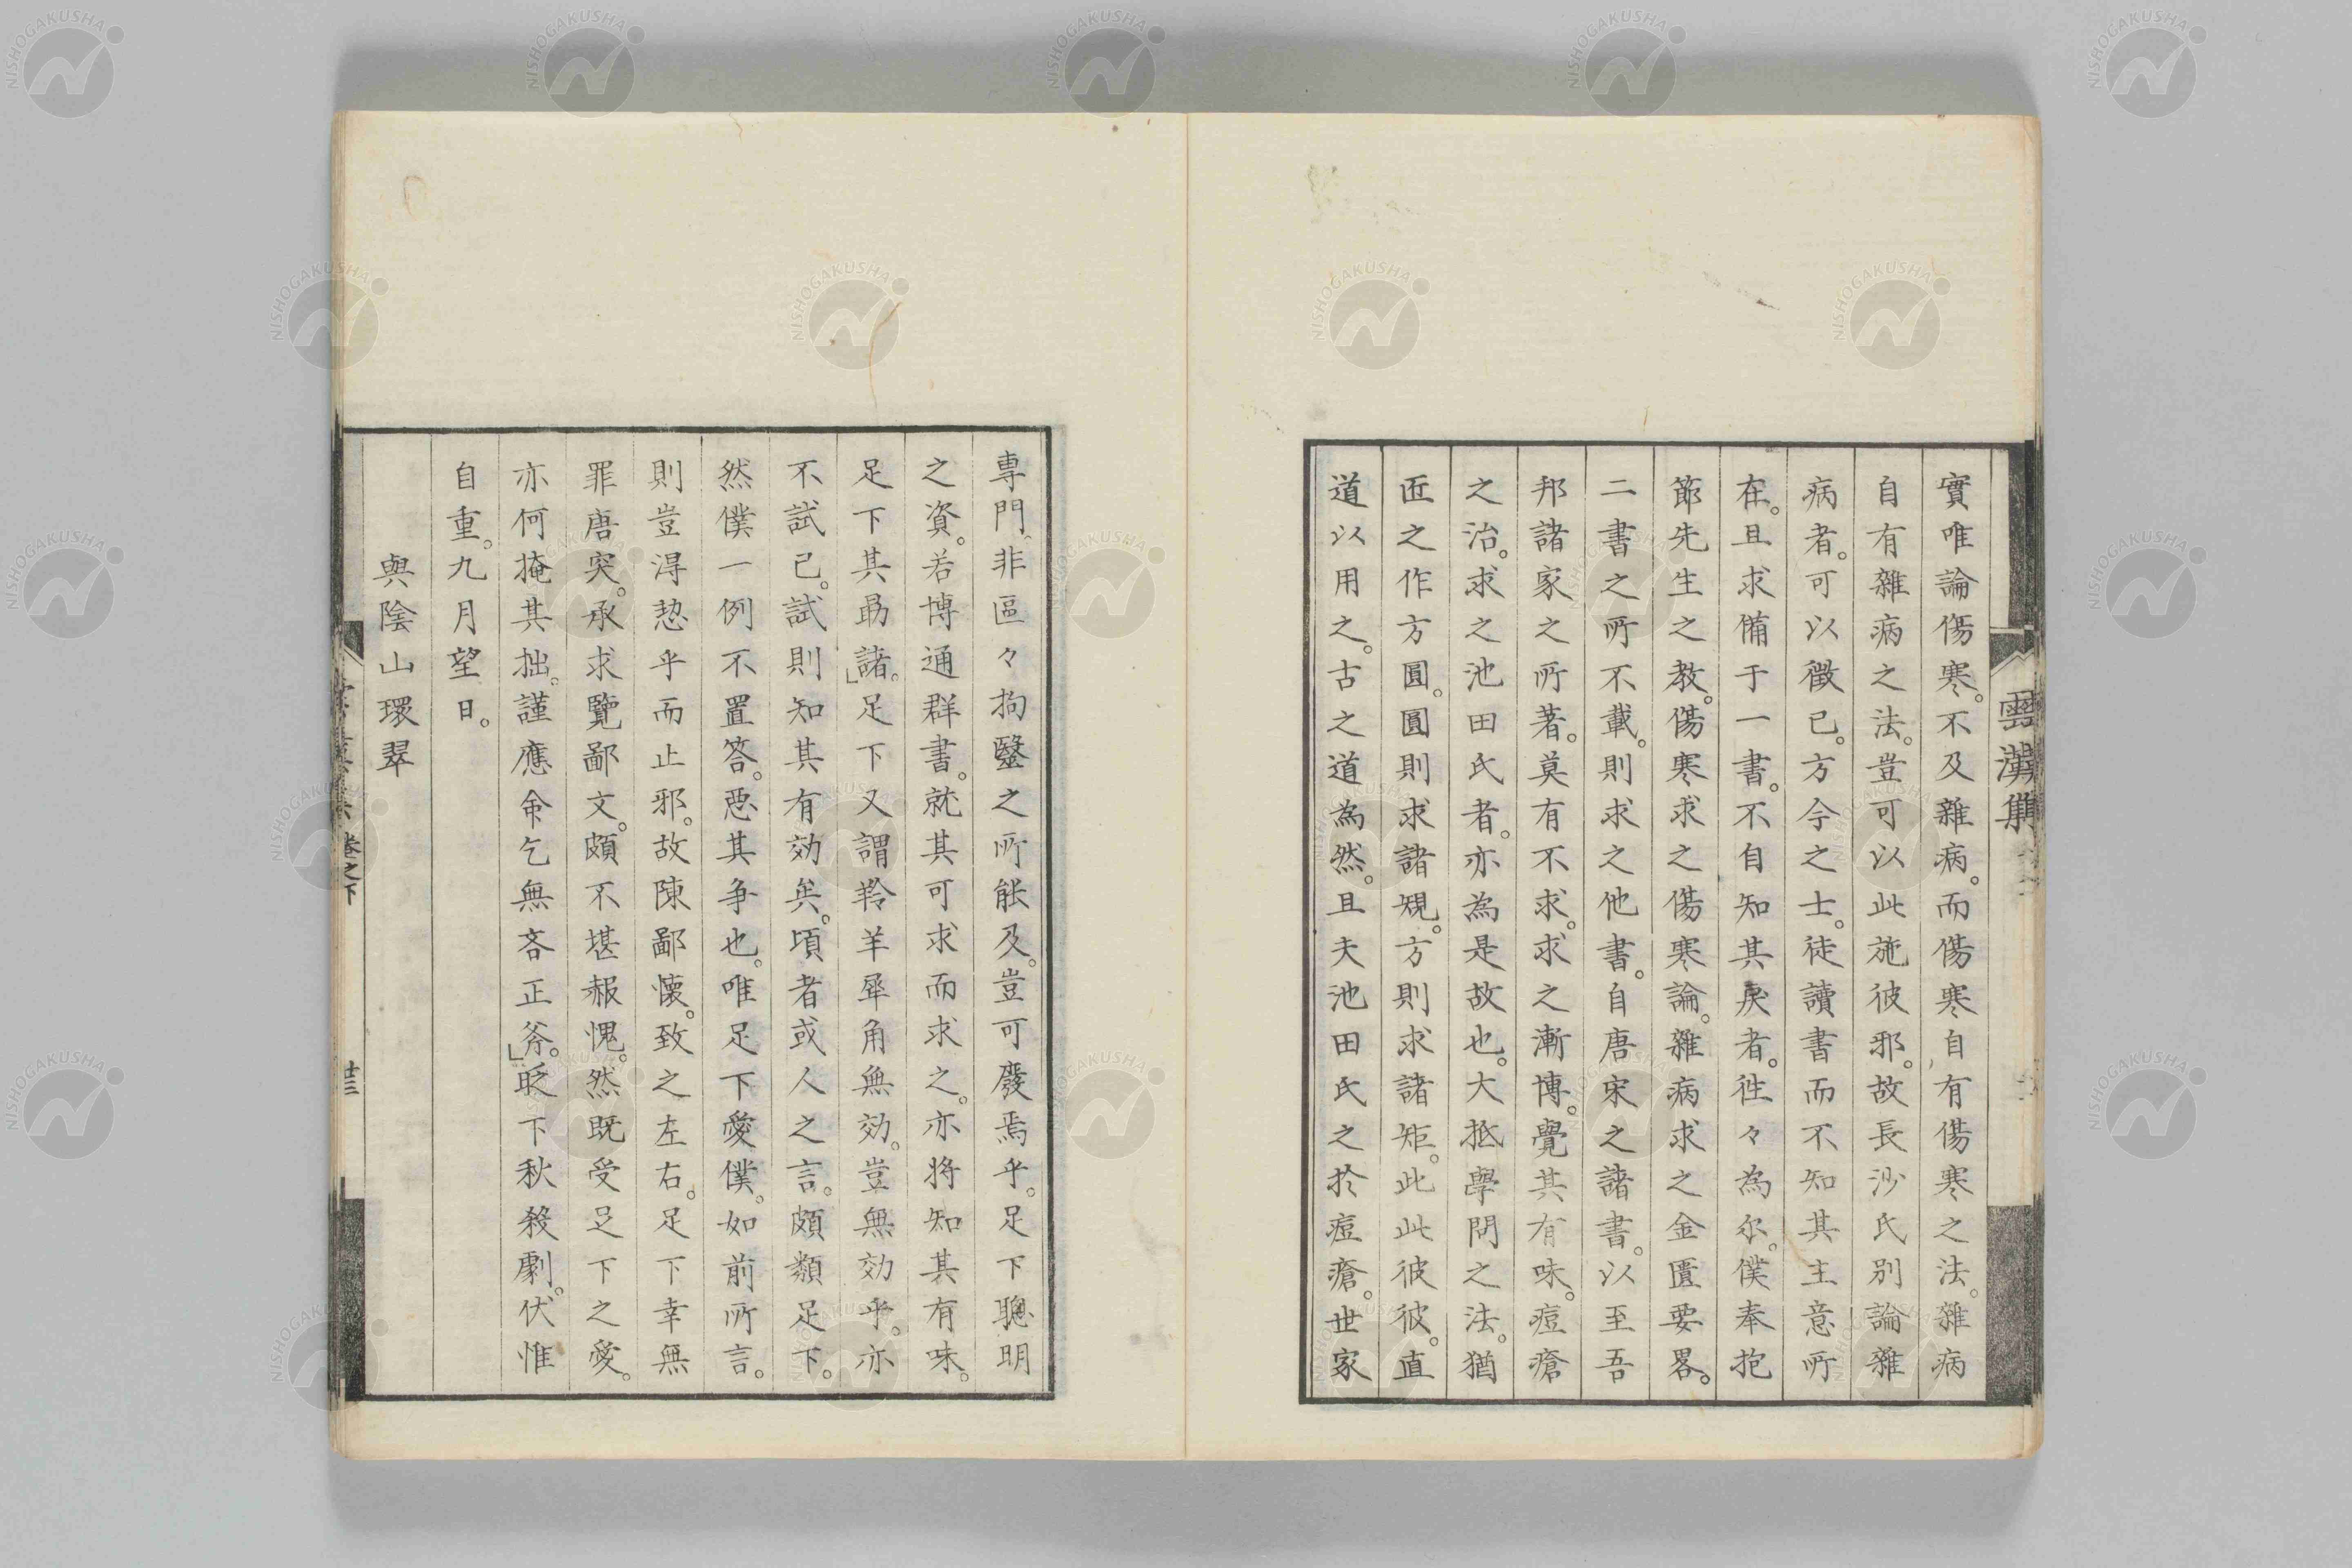 實唯論傷寒。不及雜病。而傷寒自有傷寒之法。雜病
自有雜病之法。豈可以此施彼邪。故長沙氏別論雜
病者。可以徵已。方今之士。徒讀書而不知其主意所
在。且求備于一書。不自知其戾者。徃々為尔。僕奉抱
節先生之教。傷寒求之傷寒論。雜病求之金匱要畧。
二書之所不載。則求之他書。自唐宋之諸書。以至吾
邦諸家之所著。莫有不求。求之漸博。覺其有味。痘瘡
之治。求之池田氏者。亦為是故也。大抵學問之法。猶
匠之作方圓。圓則求諸規。方則求諸矩。此此彼彼。直
道以用之。古之道為然。且夫池田氏之於痘瘡。世家
專門、非區々拘毉之所能及。豈可廢焉乎。足下聰明
之資。若博通群書。就其可求而求之。亦將知其有味。
足下其勗諸。」足下又謂羚羊犀角無効。豈無効乎。亦
不試已。試則知其有効矣。頃者或人之言。頗類足下。
然僕一例不置答。惡其爭也。唯足下愛僕。如前所言。
則豈得愸乎而止邪。故陳鄙懷。致之左右。足下幸無
罪唐突。承求覽鄙文。頗不堪赧愧。然既受足下之愛。
亦何掩其拙。謹應命乞無吝正斧。」眨下秋殺劇。伏惟
自重。九月望日。
與陰山環翠
雲漢集
卷之下
廿三
NISHOGAKUSHA